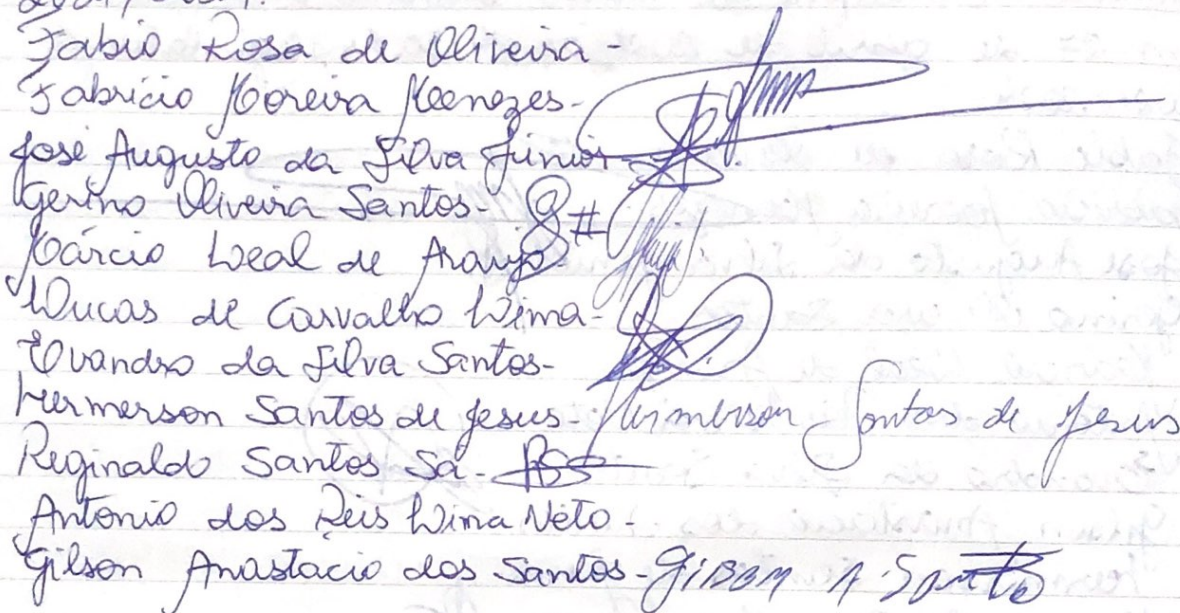 Fabio Rosa de Oliveira -
Fabricio Moreira Menezes -
José Augusto da Silva Júnior -
Gerino Oliveira Santos - #
Márcio Leal de Araujo -
Lucas de Carvalho Lima -
Evandro da Silva Santos -
Hermerson Santos de Jesus - Hermerson Santos de Jesus
Reginaldo Santos Sá - RSS
Antonio dos Reis Lima Neto -
Gilson Anastacio dos Santos - Gilson A. Santos